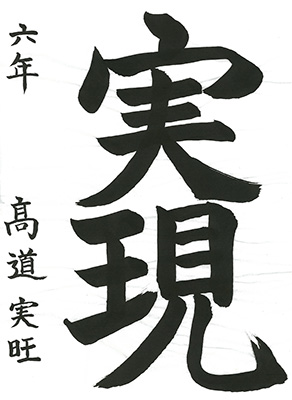 実現
六年
髙道実旺